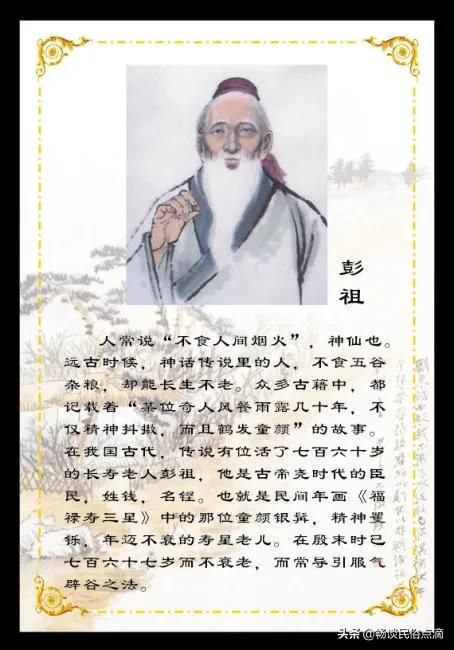 彭祖
人常说“不食人间烟火”，神仙也。
远古时候，神话传说里的人，不食五谷
杂粮，却能长生不老。众多古籍中，都
记载着“某位奇人风餐雨露几十年，不
仅精神抖擞，而且鹤发童颜”的故事。
在我国古代，传说有位活了七百六十岁
的长寿老人彭祖，他是古帝尧时代的臣
民，姓钱，名铿。也就是民间年画《福
禄寿三星》中的那位童颜银髯，精神矍
铄，年迈不衰的寿星老儿。在殷末时已
七百六十七岁而不衰老，而常导引服气
辟谷之法。
头条 @畅谈民俗点滴